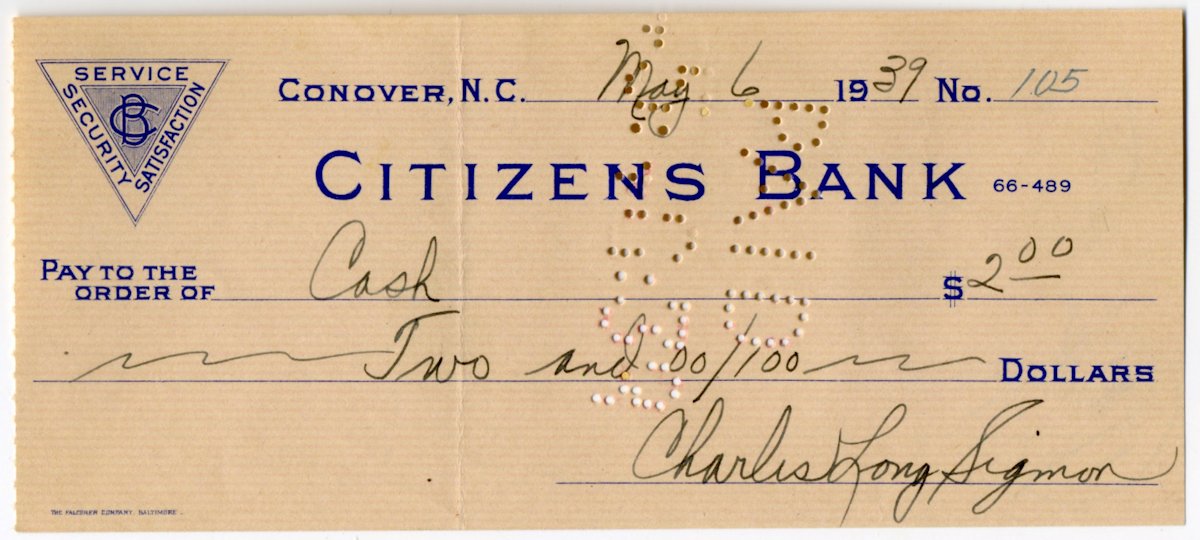 SERVICE
SECURITY
SATISFACTION
CBC
CONOVER, N.C. May 6 1939 No. 105
CITIZENS BANK 66-489
PAY TO THE
ORDER OF Cash $2 00
Two and 00/100 DOLLARS
Charles Long Sigmon
THE FALCONER COMPANY, BALTIMORE
PAID